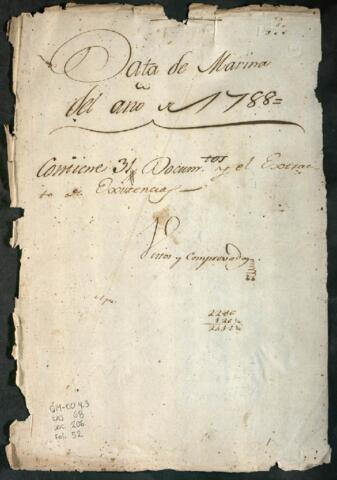 Data de Marina
del año de 1788=
Contiene 31 Documtos y el Extrac-
to de Existencias
Vistos y Comprovados
GM-CO 43
CAJ 68
DOC 206
Fol. 52